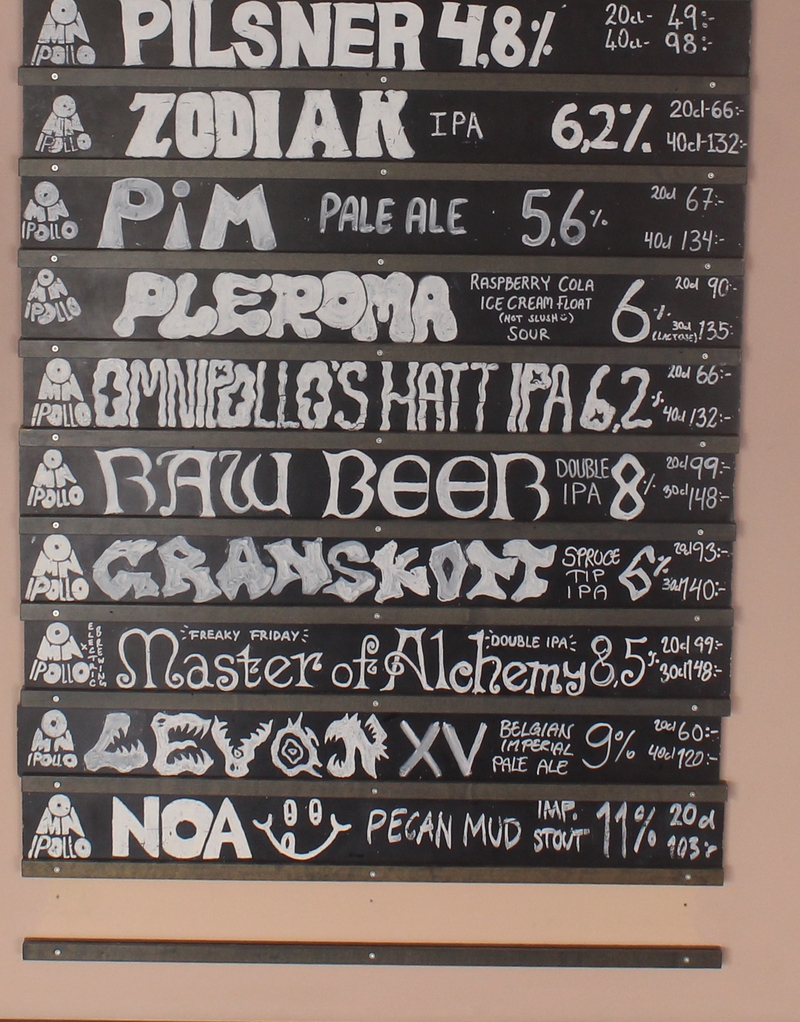 OMNIPOLLO PILSNER 4,8% 20cl- 49:-
40cl- 98:-
OMNIPOLLO ZODIAK IPA 6,2% 20cl-66:-
40cl-132:-
OMNIPOLLO PiM PALE ALE 5,6% 20cl 67:-
40cl 134:-
OMNIPOLLO PLEROMA RASPBERRY COLA
ICE CREAM FLOAT
(NOT SLUSH)
SOUR
6% (LACTOSE) 20cl 90:-
30cl 135:-
OMNIPOLLO OMNIPOLLO'S HATT IPA 6,2% 20cl 66:-
40cl 132:-
OMNIPOLLO RAW BEER DOUBLE
IPA
8% 20cl 99:-
30cl 148:-
OMNIPOLLO GRANSKOTT SPRUCE
TIP
IPA
6% 20cl 93:-
30cl 140:-
OMNIPOLLO x ELECTRIC BREWING FREAKY FRIDAY
Master of Alchemy DOUBLE IPA 8,5% 20cl 99:-
30cl 148:-
OMNIPOLLO LEVON XV BELGIAN
IMPERIAL
PALE ALE
9% 20cl 60:-
40cl 120:-
OMNIPOLLO NOA PECAN MUD IMP.
STOUT
11% 20cl
103:-